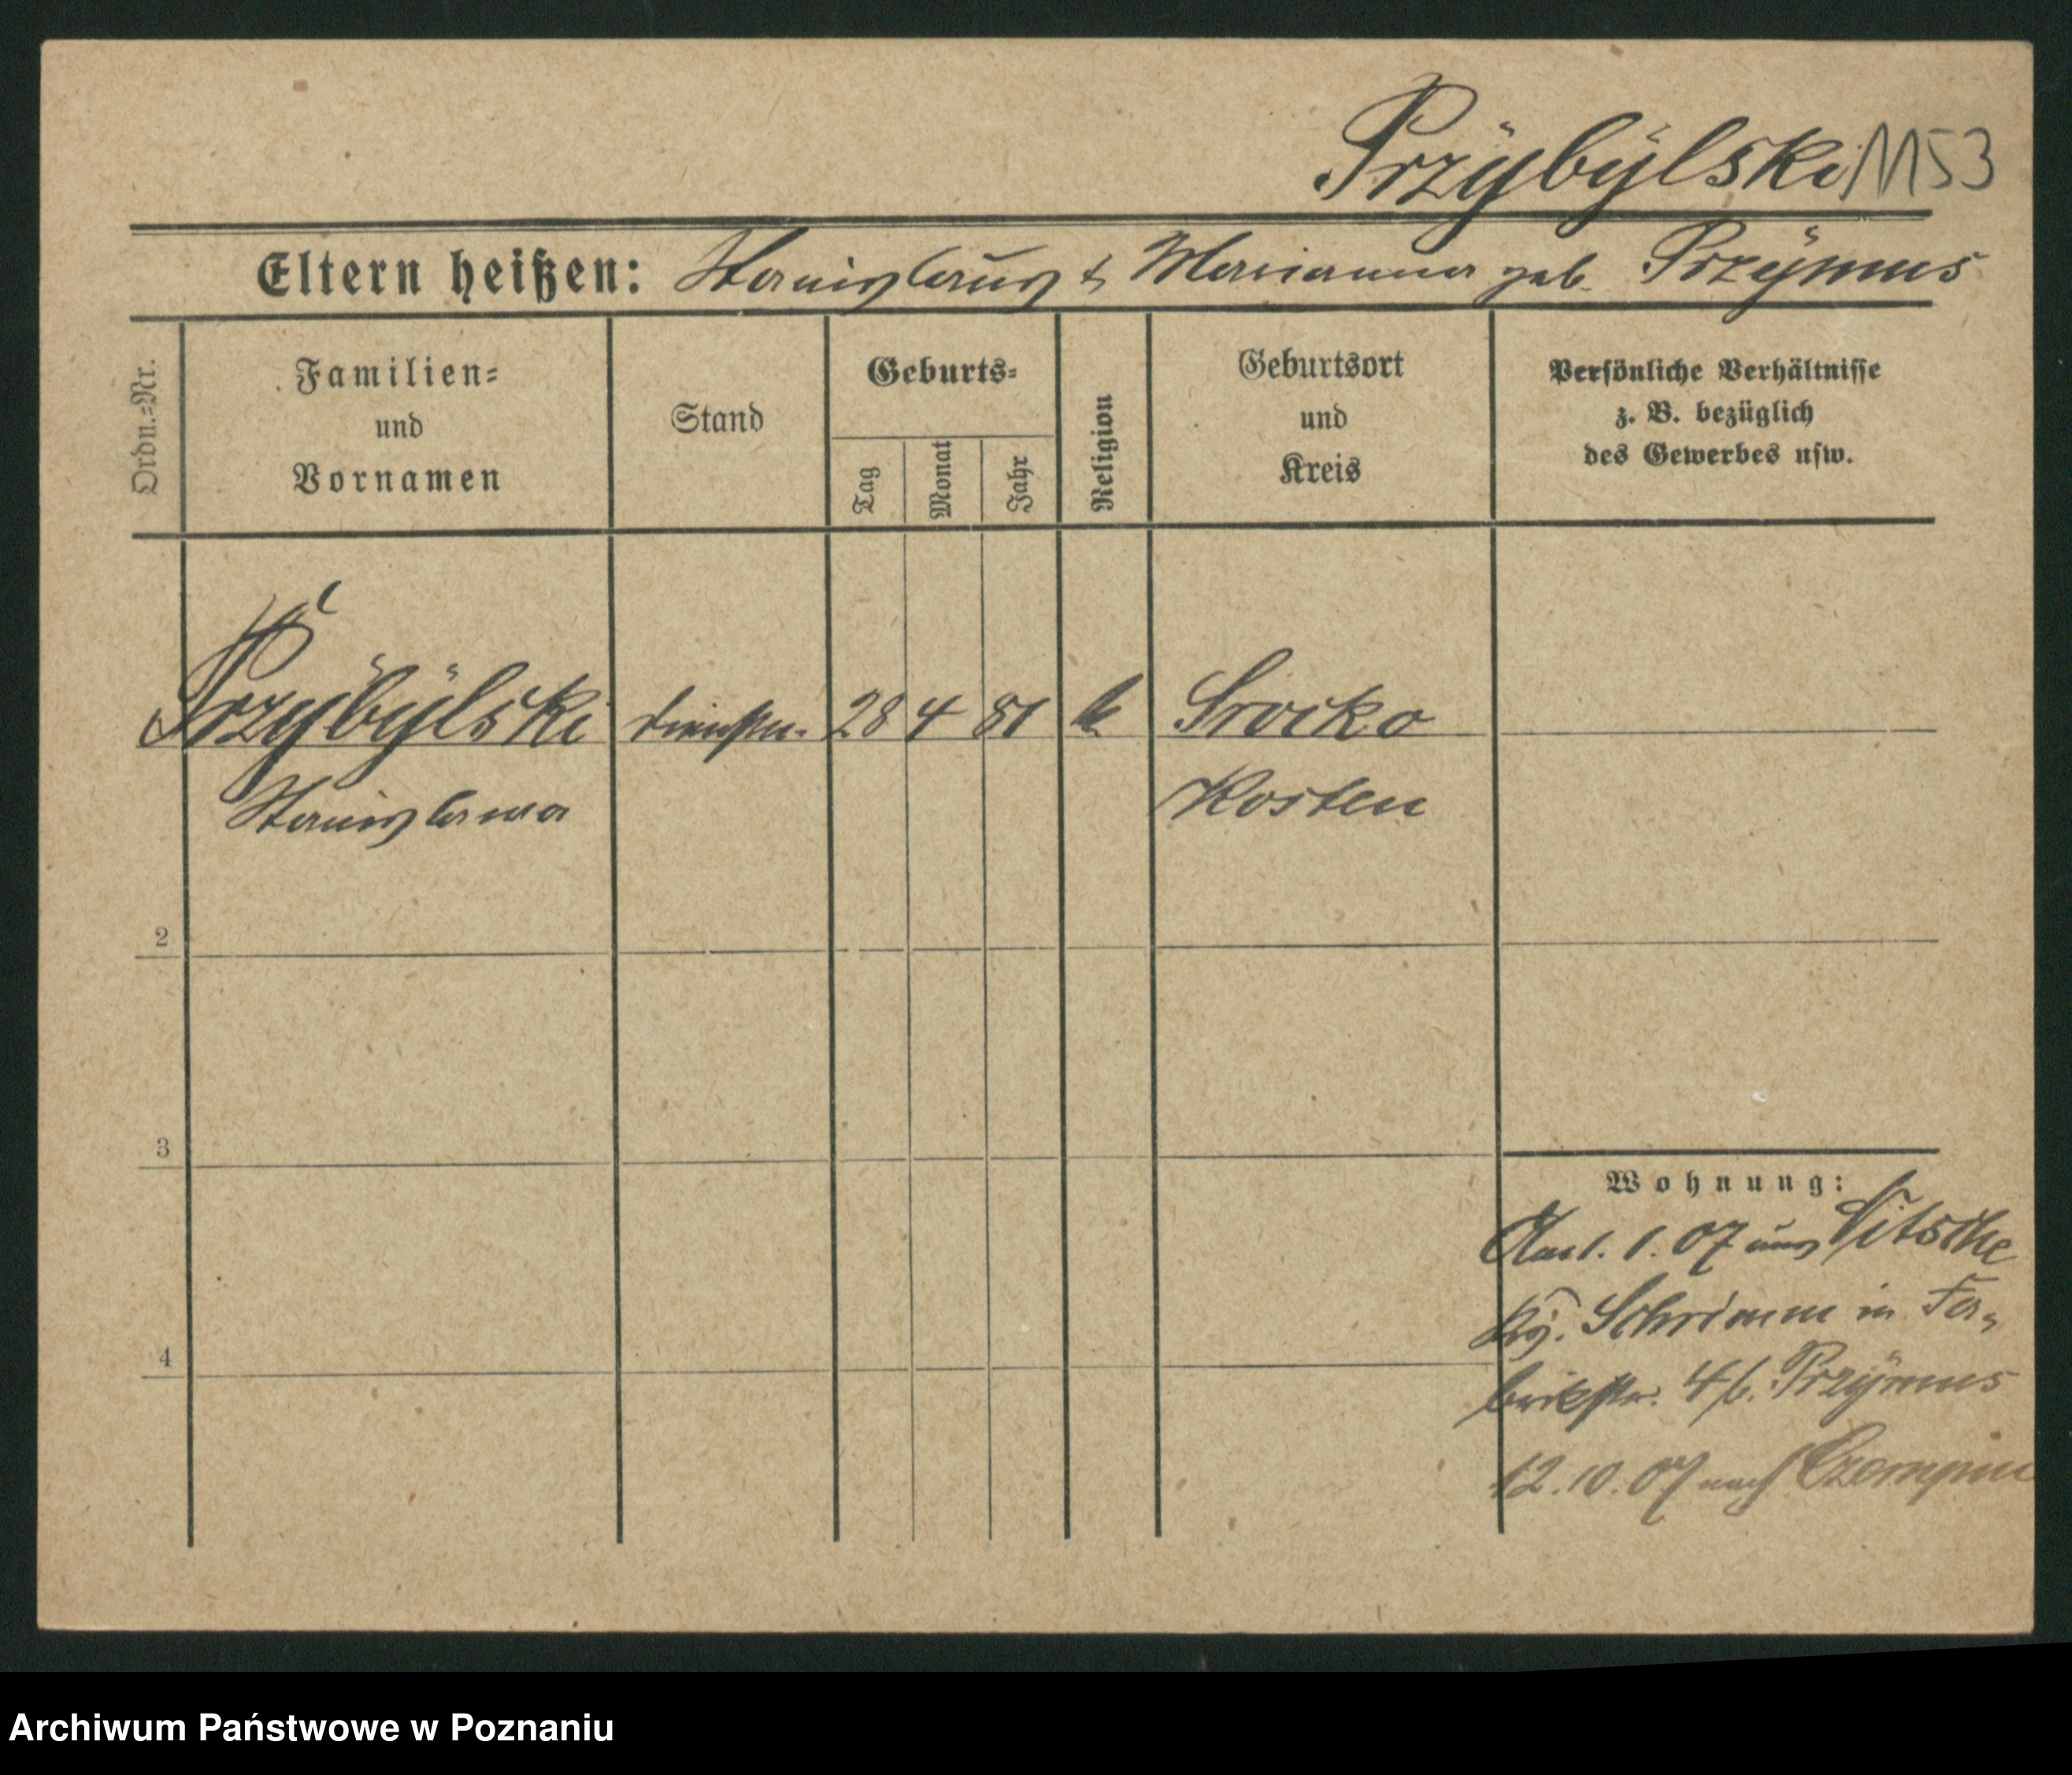 Przÿbÿlski 1153
Eltern heißen: Stanislaus & Marianna geb. Przÿmus
Ordn.=Nr.
Familien=
und
Vornamen
Stand
Geburts=
Tag
Monat
Jahr
Religion
Geburtsort
und
Kreis
Persönliche Verhältnisse
z. B. bezüglich
des Gewerbes usw.
Przÿbÿlski 28 4 81 k Srocko
Stanislawa Kosten
2
3
4
Wohnung:
1. 07 aus
Schrimm in Fa-
brikstr. 4 b. Przÿmus
12.10.07 nach Czempin
Archiwum Państwowe w Poznaniu